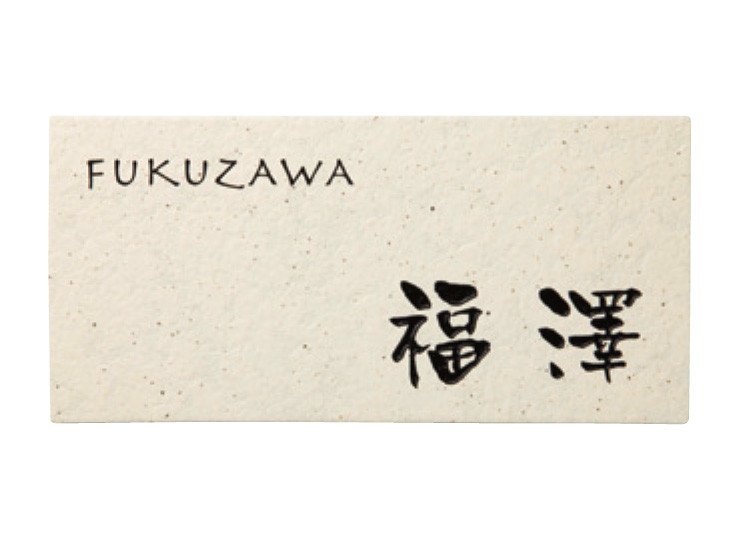 FUKUZAWA
福澤